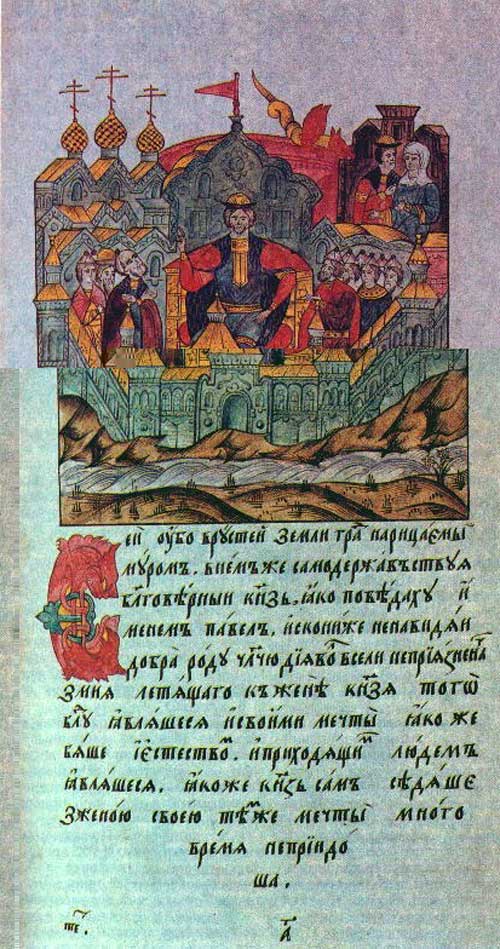 Сей ᲂубо врустей земли гра҇ нарицаемы
муромъ. внемъже самодержавъствуя
бл҃говѣрныи кн҃зь. ꙗко повѣдаху и
менемъ павелъ. искониже ненавидяи
добра роду чл҃чю дїяво всели непрїязнена
змия летящаго къженѣ кн҃зя тогѡ
блꙋ ꙗвляшеся исвоими мечты ꙗко же
бяше їестество. иприходящи людемъ
ꙗвляшеся. ꙗкоже кн҃зь самъ сѣдяше
зженою своею тѣже мечты много
время непрїидо
ша.
а҃